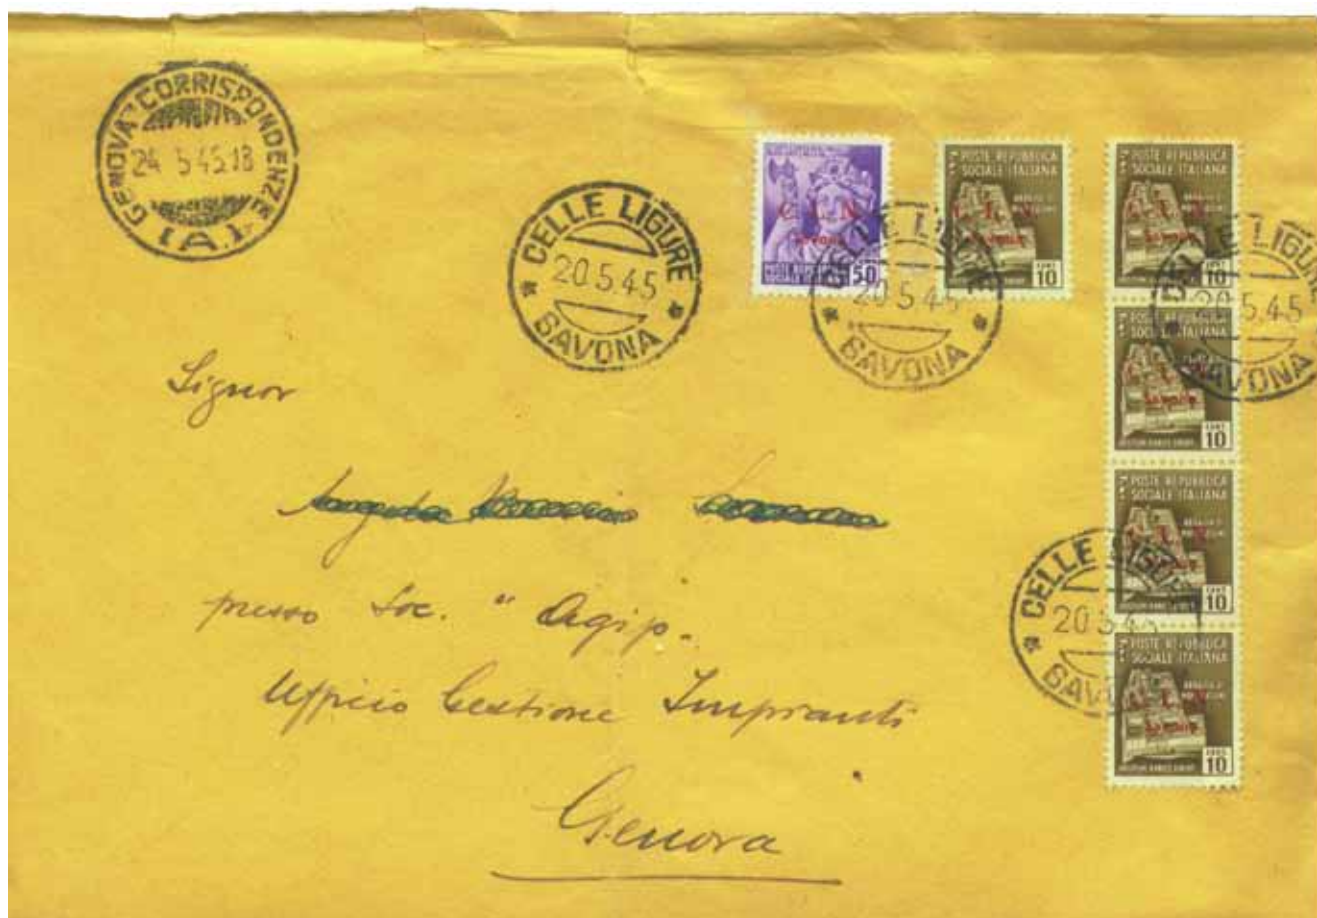 GENOVA CORRISPONDENZE
24 5 45.18
(A)
CELLE LIGURE
20.5.45
SAVONA
C. L. N.
Savona
50
CELLE LIGURE
20 5 45
SAVONA
POSTE REPUBBLICA
SOCIALE ITALIANA
C. L. N.
Savona
CENT
10
POSTE REPUBBLICA
SOCIALE ITALIANA
C. L. N.
Savona
10
CELLE LIGURE
20 5.45
SAVONA
POSTE REPUBBLICA
SOCIALE ITALIANA
C. L. N.
Savona
CENT
10
POSTE REPUBBLICA
SOCIALE ITALIANA
C. L. N.
Savona
CENT
10
CELLE LIGURE
20 5 45
SAVONA
POSTE REPUBBLICA
SOCIALE ITALIANA
C. L. N.
Savona
CENT
10
Signor
presso Soc. " Agip.
Ufficio Gestione Impianti
Genova